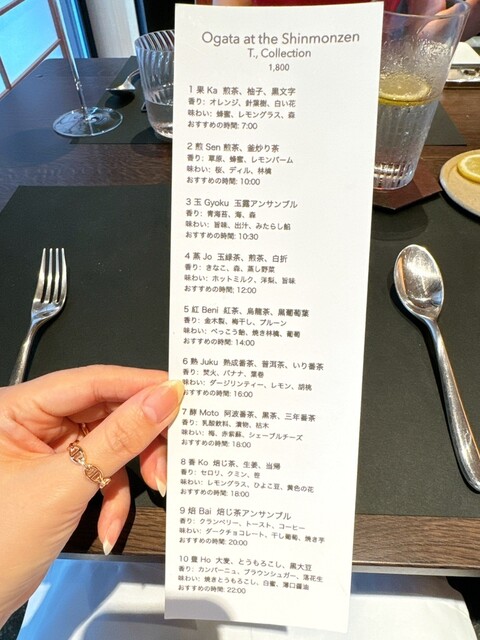 Ogata at the Shinmonzen
T., Collection
1,800
1 果 Ka 煎茶、柚子、黒文字
香り: オレンジ、針葉樹、白い花
味わい: 蜂蜜、レモングラス、森
おすすめの時間: 7:00
2 煎 Sen 煎茶、釜炒り茶
香り: 草原、蜂蜜、レモンバーム
味わい: 桜、ディル、林檎
おすすめの時間: 10:00
3 玉 Gyoku 玉露アンサンブル
香り: 青海苔、海、森
味わい: 旨味、出汁、みたらし餡
おすすめの時間: 10:30
4 蒸 Jo 玉緑茶、煎茶、白折
香り: きなこ、森、蒸し野菜
味わい: ホットミルク、洋梨、旨味
おすすめの時間: 12:00
5 紅 Beni 紅茶、烏龍茶、黒葡萄葉
香り: 金木犀、梅干し、プルーン
味わい: べっこう飴、焼き林檎、葡萄
おすすめの時間: 14:00
6 熟 Juku 熟成番茶、普洱茶、いり番茶
香り: 焚火、バナナ、葉巻
味わい: ダージリンティー、レモン、胡桃
おすすめの時間: 16:00
7 酵 Moto 阿波番茶、黒茶、三年番茶
香り: 乳酸飲料、漬物、枯木
味わい: 梅、赤紫蘇、シェーブルチーズ
おすすめの時間: 18:00
8 香 Ko 焙じ茶、生姜、当帰
香り: セロリ、クミン、笹
味わい: レモングラス、ひよこ豆、黄色の花
おすすめの時間: 18:00
9 焙 Bai 焙じ茶アンサンブル
香り: クランベリー、トースト、コーヒー
味わい: ダークチョコレート、干し葡萄、焼き芋
おすすめの時間: 20:00
10 豊 Ho 大麦、とうもろこし、黒大豆
香り: カンパーニュ、ブラウンシュガー、落花生
味わい: 焼きとうもろこし、白蜜、薄口醤油
おすすめの時間: 22:00